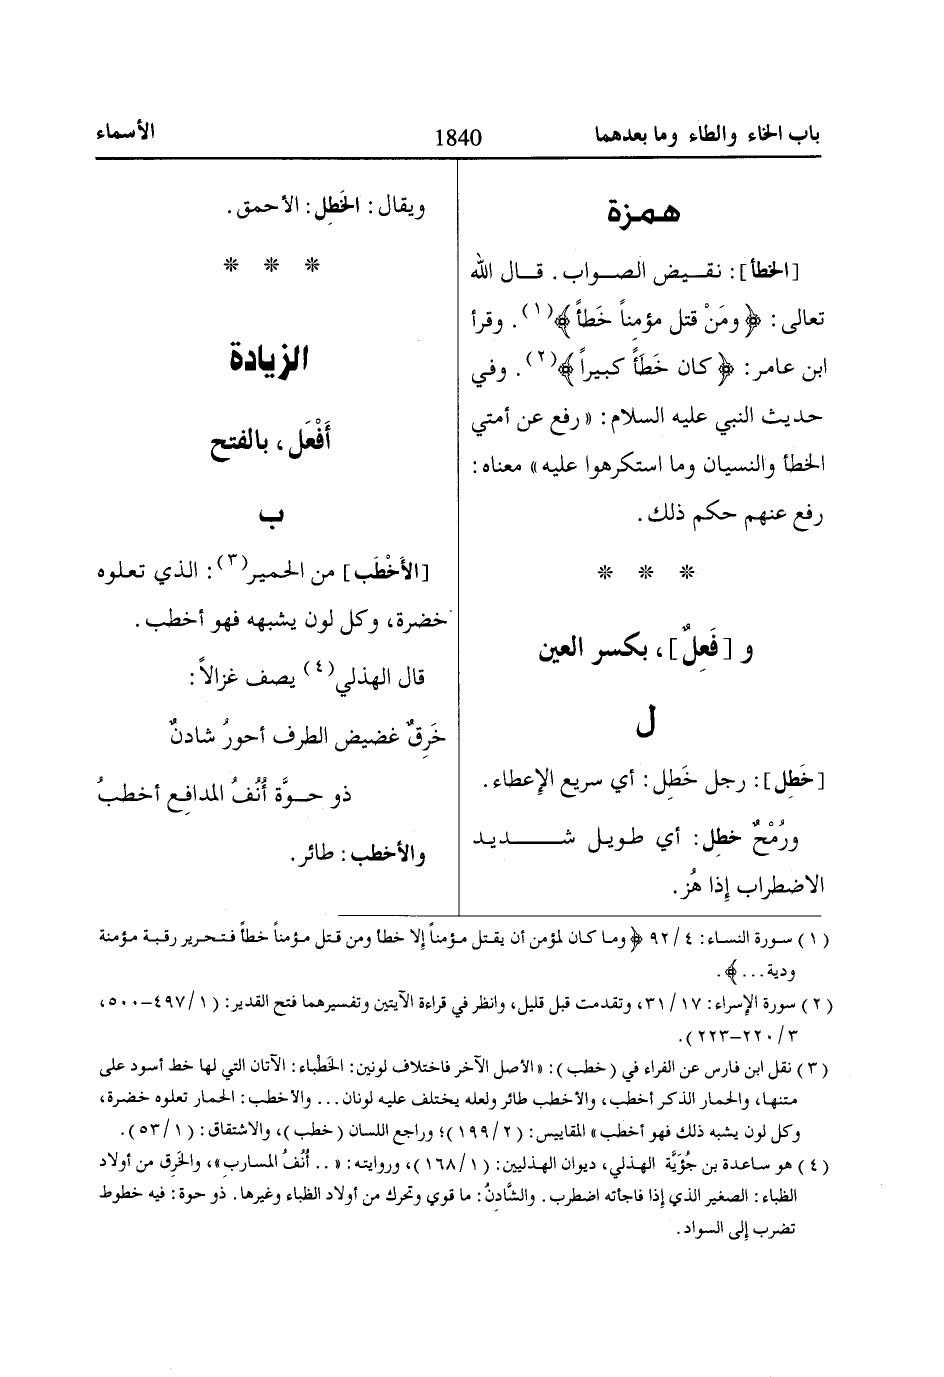 باب الخاء والطاء وما بعدهما
1840
الأسماء
همزة
[الخطأ]: نقيض الصواب. قال الله
تعالى: ﴿ومَنْ قتل مؤمناً خَطأً﴾(١). وقرأ
ابن عامر: ﴿كان خَطَأً كبيراً﴾(٢). وفي
حديث النبي عليه السلام: «رفع عن أمتي
الخطأ والنسيان وما استكرهوا عليه» معناه:
رفع عنهم حكم ذلك.
* * *
و [فَعِلٌ]، بكسر العين
ل
[خَطِل]: رجل خَطِل: أي سريع الإعطاء.
ورُمْحٌ خطِل: أي طويل شديد
الاضطراب إذا هُز.
ويقال: الخَطِل: الأحمق.
* * *
الزيادة
أَفْعَل، بالفتح
ب
[الأَخْطَب] من الحمير(٣): الذي تعلوه
خضرة، وكل لون يشبهه فهو أخطب.
قال الهذلي(٤) يصف غزالاً:
خَرِقٌ غضيض الطرف أحورُ شادنٌ
ذو حوَّة أُنُفُ المدافِع أخطبُ
والأخطب: طائر.
(١) سورة النساء: ٤/ ٩٢ ﴿وما كان لمؤمن أن يقتل مؤمناً إلا خطأ ومن قتل مؤمناً خطأً فتحرير رقبة مؤمنة
ودية...﴾.
(٢) سورة الإسراء: ١٧/ ٣١، وتقدمت قبل قليل، وانظر في قراءة الآيتين وتفسيرهما فتح القدير: (١/ ٤٩٧-٥٠٠،
٣/ ٢٢٠-٢٢٣).
(٣) نقل ابن فارس عن الفراء في (خطب): «الأصل الآخر فاختلاف لونين: الخَطْباء: الآتان التي لها خط أسود على
متنها، والحمار الذكر أخطب، والأخطب طائر ولعله يختلف عليه لونان... والأخطب: الحمار تعلوه خضرة،
وكل لون يشبه ذلك فهو أخطب» المقاييس: (٢/ ١٩٩)؛ وراجع اللسان (خطب)، والاشتقاق: (١/ ٥٣).
(٤) هو ساعدة بن جُؤَيَّة الهذلي، ديوان الهذليين: (١/ ١٦٨)، وروايته: «.. أُنُفُ المسارب»، والخَرِق من أولاد
الظباء: الصغير الذي إذا فاجأته اضطرب. والشَّادِنُ: ما قوي وتحرك من أولاد الظباء وغيرها. ذو حوة: فيه خطوط
تضرب إلى السواد.